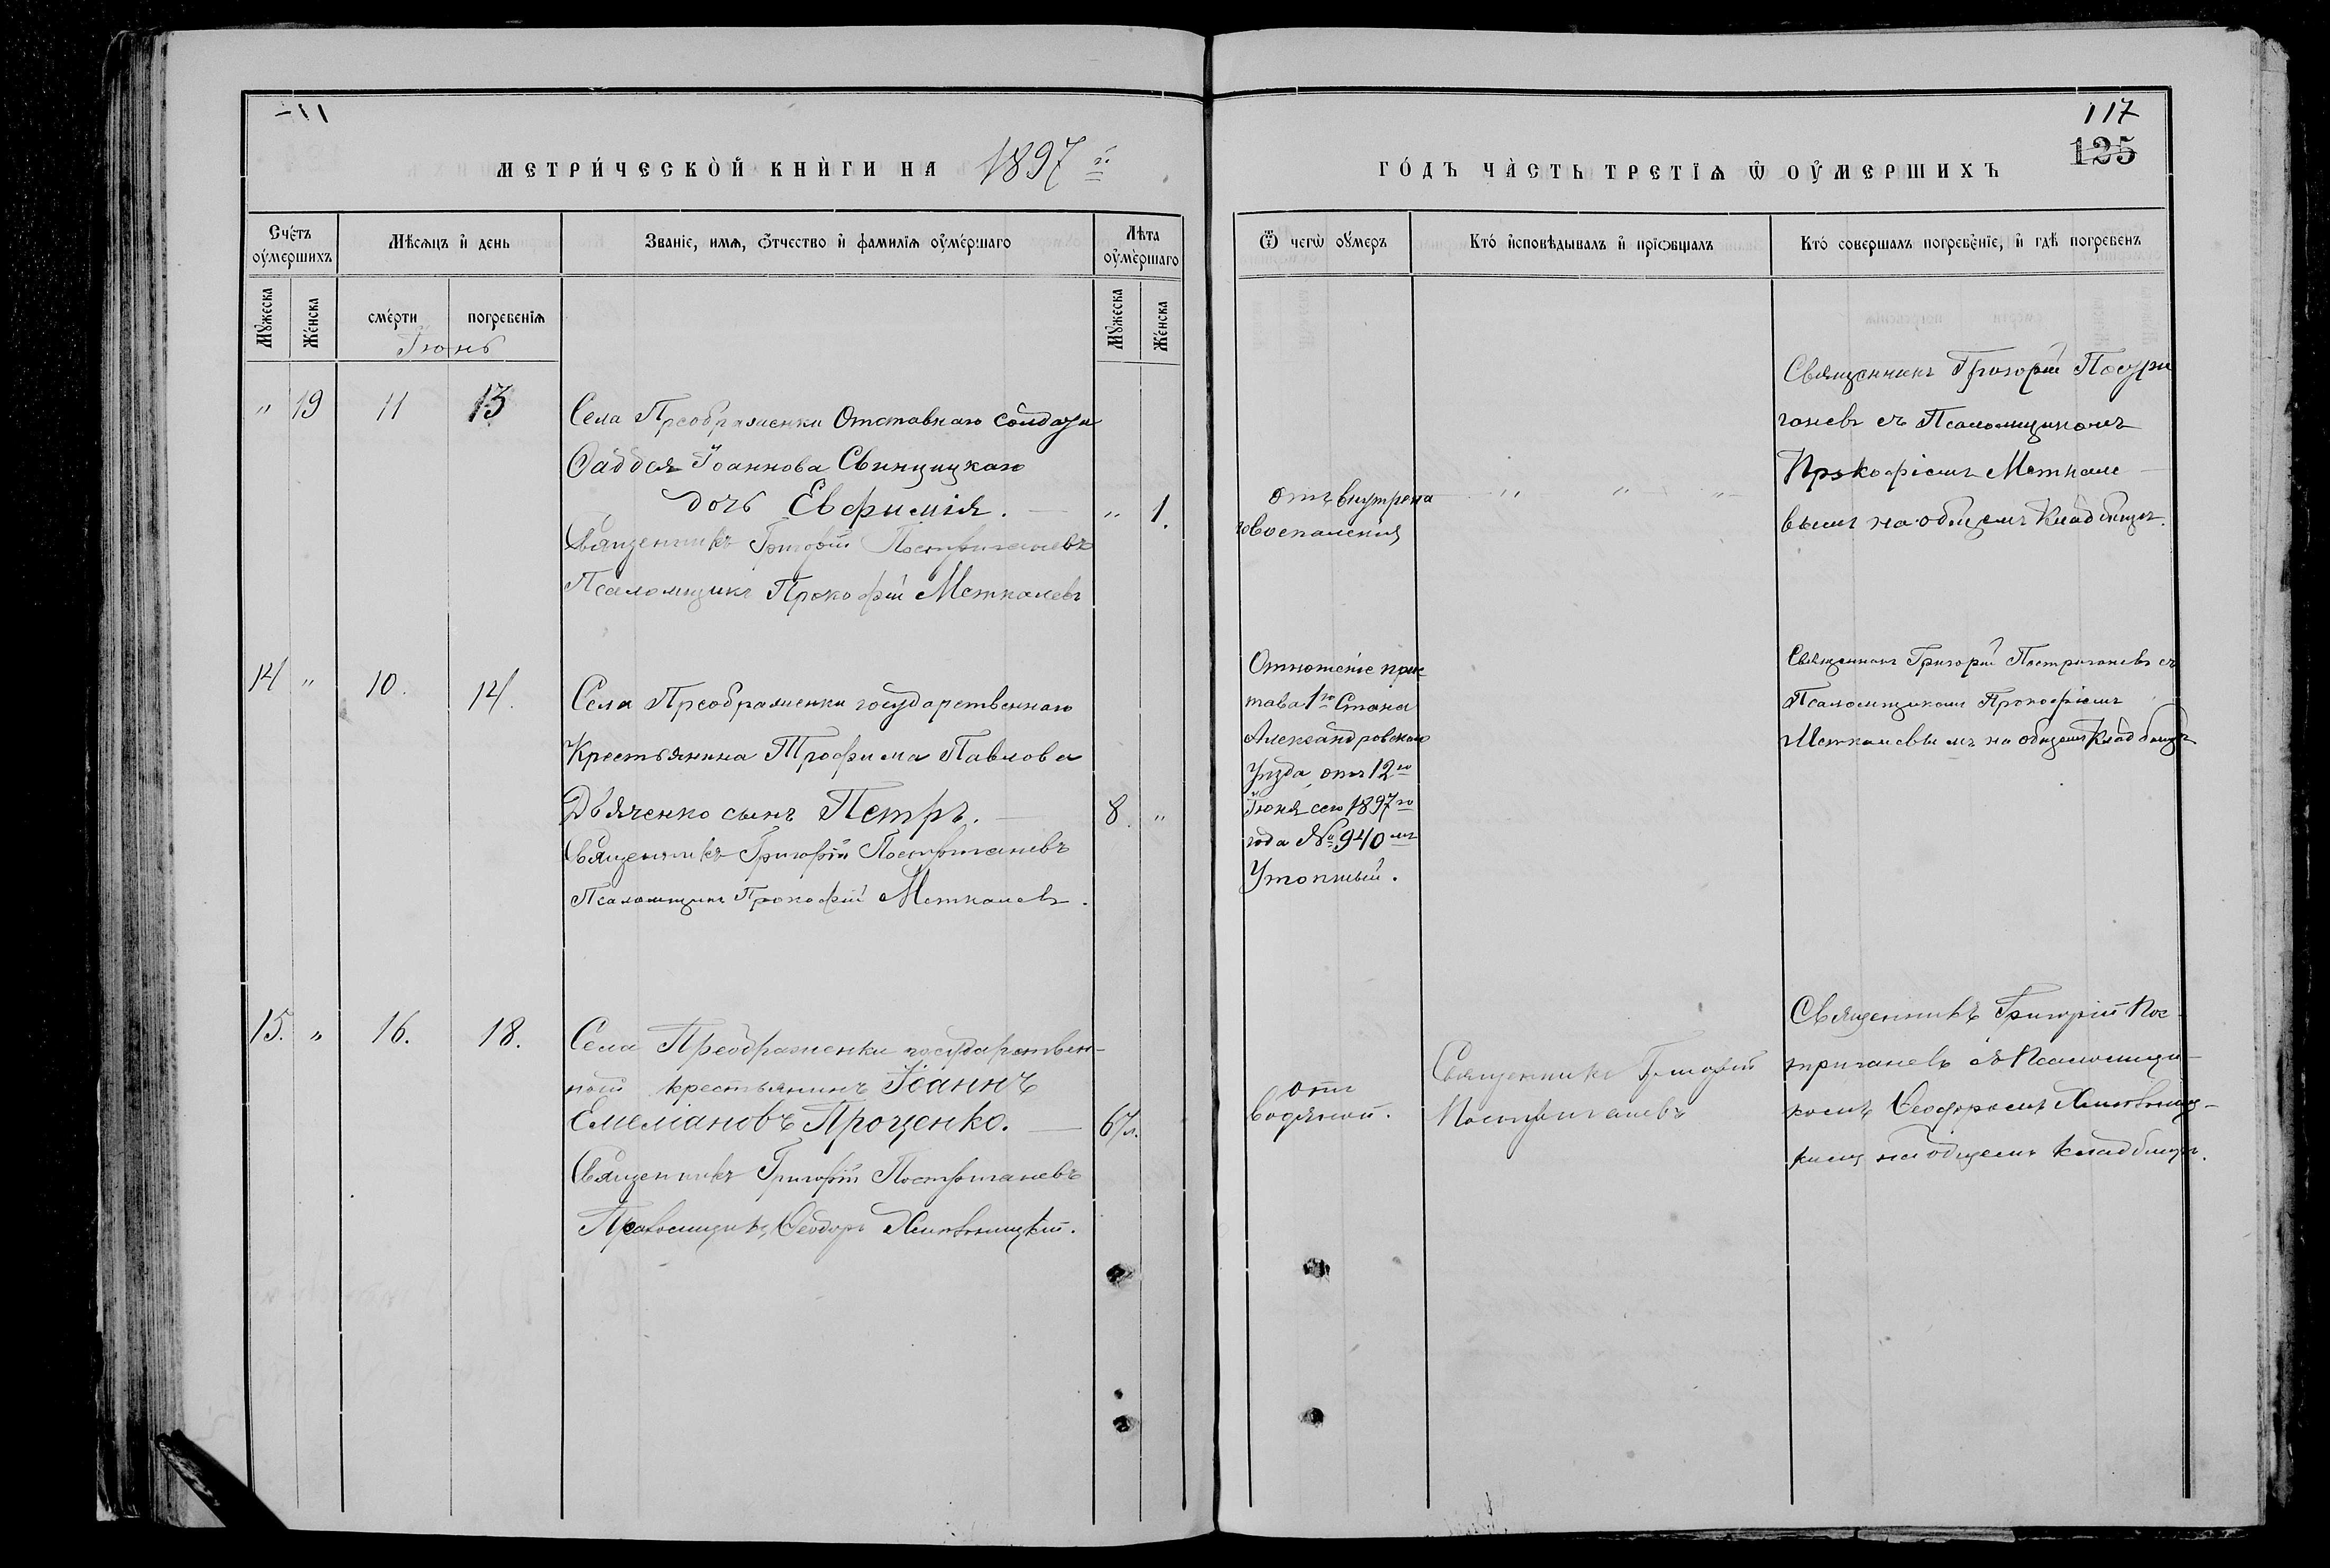 117
125
МЕТРИ́ЧЕСКОЙ КНИ́ГИ НА 1897 й
ГО́ДЪ ЧА́СТЬ ТРЕТІѦ Ѡ ОУ҆МЕРШИХЪ
Сче́тъ оу҆мершихъ
Мѣсѧцъ и҆ день
Званіе, имѧ, ѻ҆тчество и҆ фамилїѧ оу҆ме́ршагѡ
Лѣта оу҆ме́ршаго
Ѿ чегѡ̀ оу҆́меръ
Кто́ и҆сповѣдывалъ и҆ прїѡбщалъ
Кто́ совершалъ погребе́нїе, и҆ гдѣ̀ погребенъ
Мꙋ́жеска
Же́нска
сме́рти
погребенїѧ
Мꙋ́жеска
Же́нска
Іюнь
" 19 11 13
Села Преображенки Отставнаго солдата
Ѳаддея Іоаннова Свинцицкаго
дочь Евфимія. " 1.
Священникъ Григорій Постриганевъ
Псаломщикъ Прокофій Меткалевъ
отъ внутрена
го воспаленія
" " "
Священникъ Григорій Постри
ганевъ съ Псаломщикомъ
Прокофіемъ Меткале
вымъ на общемъ Кладбищѣ.
14 " 10. 14.
Села Преображенки государственнаго
Крестьянина Трофима Павлова
Дьяченко сынъ Петръ. 8. "
Священникъ Григорій Постриганевъ
Псаломщикъ Прокофій Меткалевъ.
Отношеніе прис
тава 1го Стана
Александровскаго
Уѣзда, отъ 12го
Іюня сего 1897го
года № 940мъ
Утопшый.
Священникъ Григорій Постриганевъ съ
Псаломщикомъ Прокофіемъ
Меткалевымъ на общемъ Кладбищѣ
15. " 16. 18.
Села Преображенки государствен-
ной крестьянинъ Іоаннъ
Емеліановъ Проценко. 67л.
Священникъ Григорій Постриганевъ
Псаломщикъ Ѳеодоръ
отъ
водяной.
Священникъ Григорій
Постриганевъ
Священникъ Григорій Пос-
триганевъ съ Псаломщи-
комъ Ѳеодоромъ
кимъ на общемъ кладбищѣ.